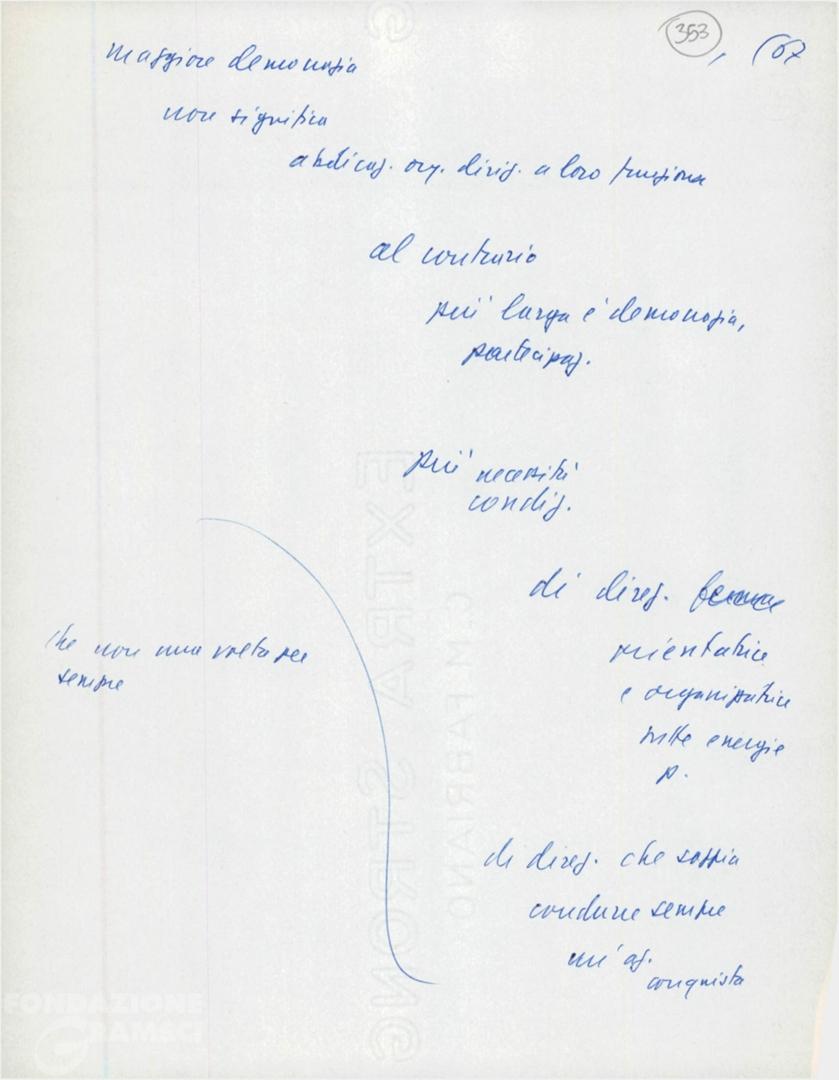 353
, (67
maggiore democrazia
non significa
abdicaz. org. dirig. a loro funzione
al contrario
più larga è democrazia,
partecipaz.
più necessità
condiz.
di direz. ferma
orientatrice
e organizzatrice
tutte energie
p.
che non una volta per
sempre
di direz. che sappia
condurre sempre
un' az.
conquista
EXTRA STRONG
C.M. FABRIANO
FONDAZIONE
GRAMSCI